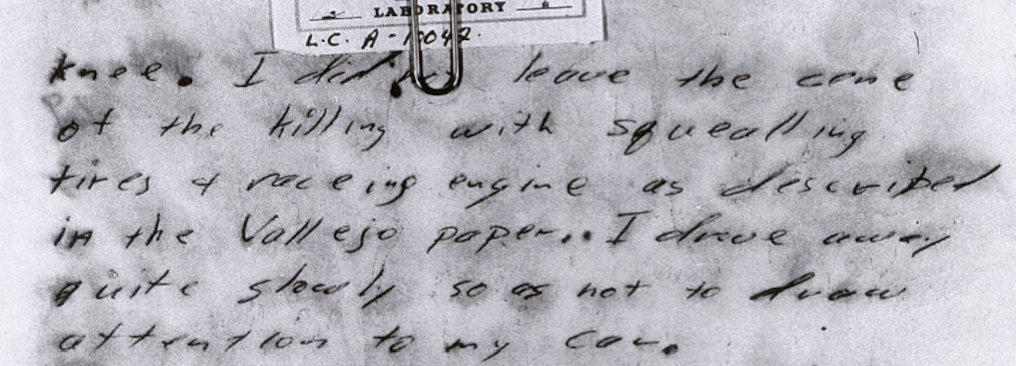 LABORATORY
L.C.
knee. I did not leave the cene
of the killing with squealling
tires & raceing engine as described
in the Vallejo paper,. I drove away
quite slowly so as not to draw
attention to my car.